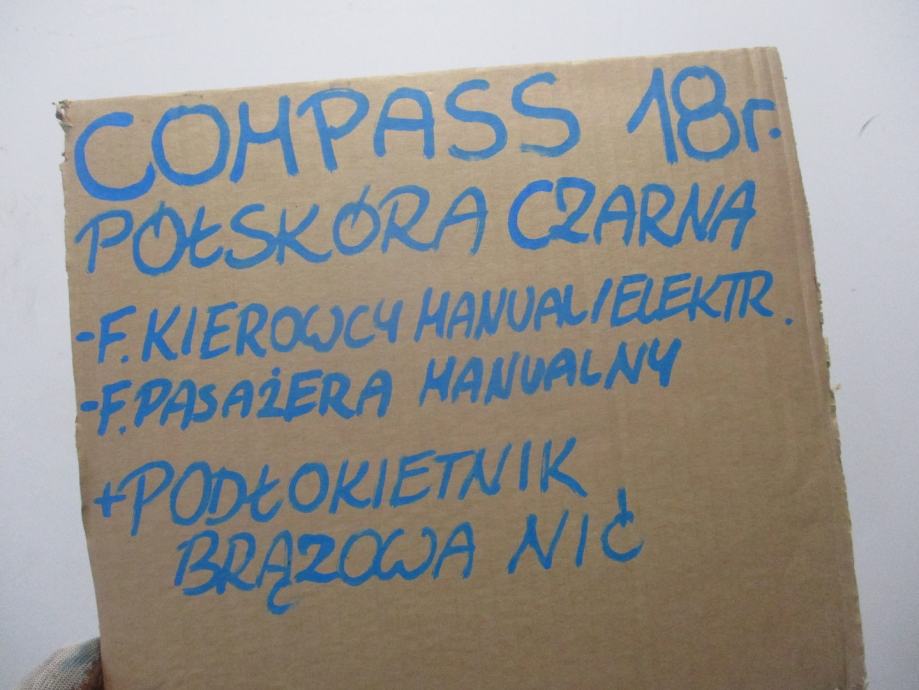 COMPASS 18r.
PÓŁSKÓRA CZARNA
-F. KIEROWCY MANUAL/ELEKTR.
-F. PASAŻERA MANUALNY
+PODŁOKIETNIK
BRĄZOWA NIĆ